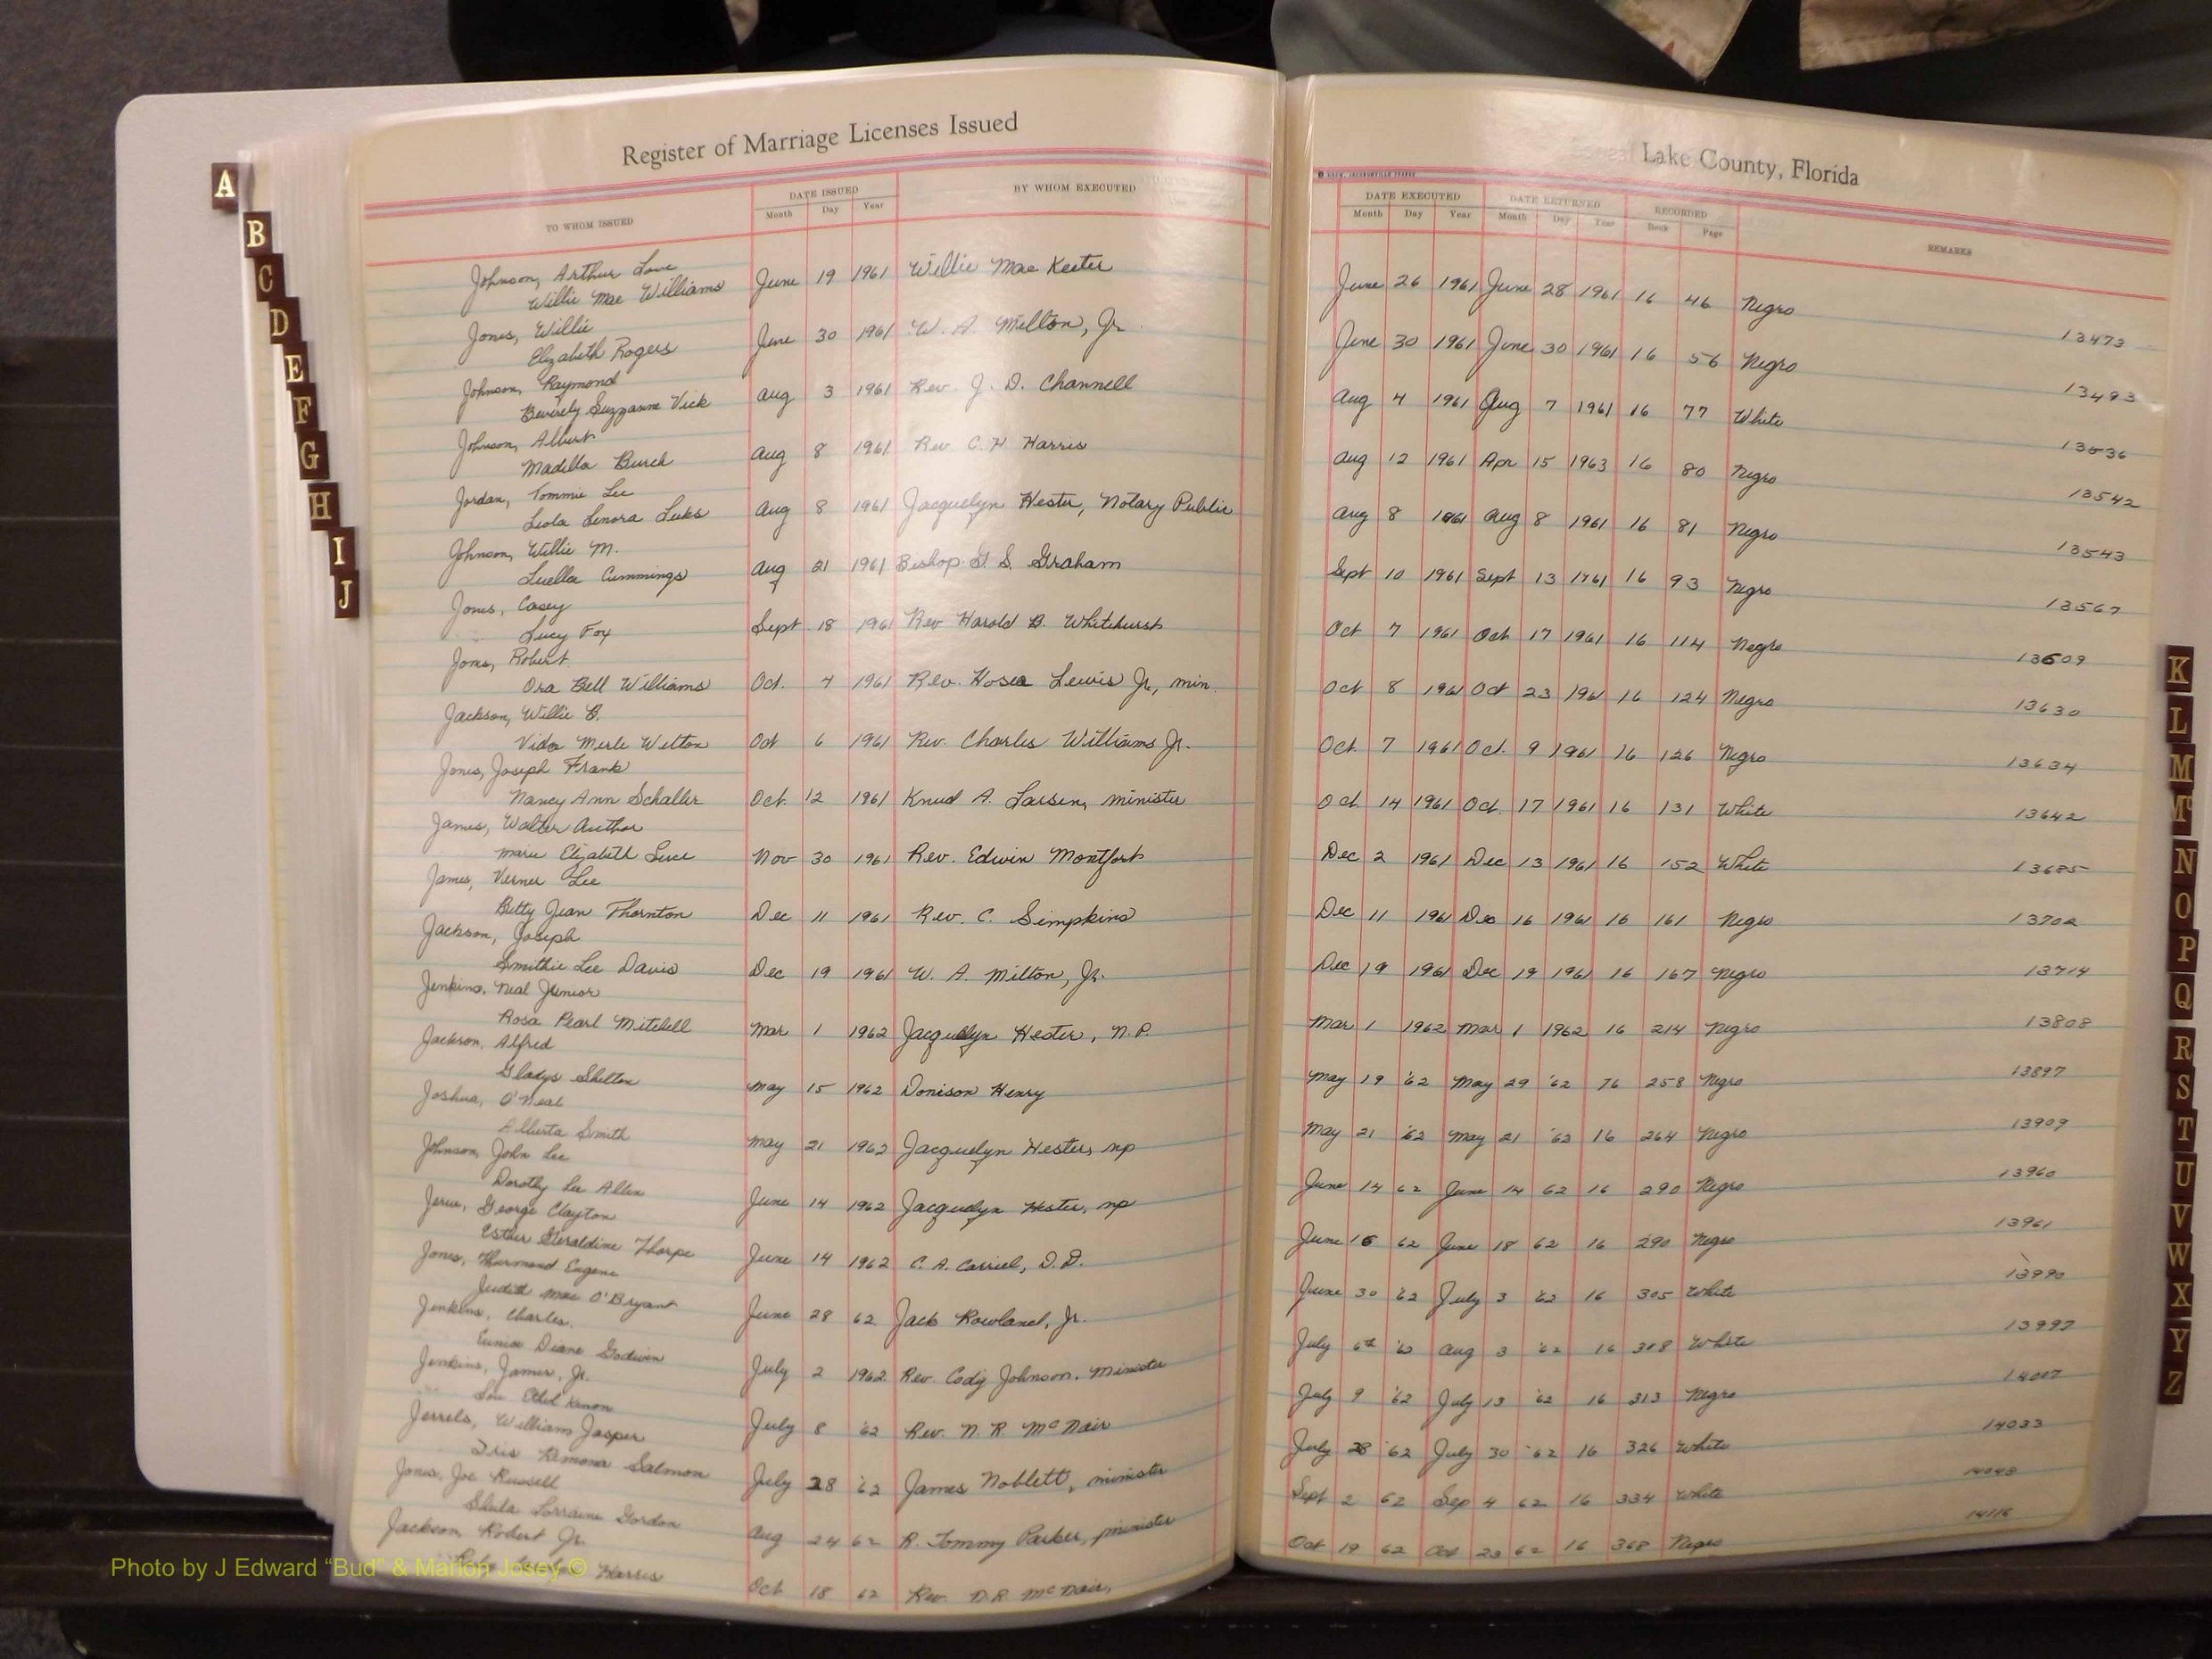 Register of Marriage Licenses Issued
Lake County, Florida
TO WHOM ISSUED
DATE ISSUED
Month Day Year
BY WHOM EXECUTED
DATE EXECUTED
Month Day Year
DATE RETURNED
Month Day Year
RECORDED
Book Page
REMARKS
Johnson, Arthur Love
Willie Mae Williams June 19 1961 Willie Mae Keeter June 26 1961 June 28 1961 16 46 Negro 13473
Jones, Willie
Elizabeth Rogers June 30 1961 W. A. Milton, Jr. June 30 1961 June 30 1961 16 56 Negro 13493
Johnson, Raymond
Beverely Suzzanne Vick Aug 3 1961 Rev. J. D. Channell Aug 4 1961 Aug 7 1961 16 77 White 13536
Johnson, Albert
Madella Burch Aug 8 1961 Rev. C. H Harris Aug 12 1961 Apr 15 1963 16 80 Negro 13542
Jordan, Tommie Lee
Leola Lenora Luks Aug 8 1961 Jacquelyn Hester, Notary Public Aug 8 1961 Aug 8 1961 16 81 Negro 13543
Johnson, Willie M.
Luella Cummings Aug 21 1961 Bishop G. S. Graham Sept 10 1961 Sept 13 1961 16 93 Negro 13567
Jones, Casey
Lucy Fox Sept 18 1961 Rev Harold B. Whitehurst Oct 7 1961 Oct 17 1961 16 114 Negro 13609
Jones, Robert
Ora Bell Williams Oct. 4 1961 Rev. Hosea Lewis Jr., min. Oct 8 1961 Oct 23 1961 16 124 Negro 13630
Jackson, Willie B.
Vida Merle Welton Oct 6 1961 Rev. Charles Williams Jr. Oct. 7 1961 Oct. 9 1961 16 126 Negro 13634
Jones, Joseph Frank
Nancy Ann Schaller Oct. 12 1961 Knud A. Larsen, minister Oct. 14 1961 Oct. 17 1961 16 131 White 13642
James, Walter Author
Marie Elizabeth Nov 30 1961 Rev. Edwin Montfort Dec 2 1961 Dec 13 1961 16 152 White 13685
James, Verner Lee
Betty Jean Thornton Dec 11 1961 Rev. C. Simpkins Dec 11 1961 Dec 16 1961 16 161 Negro 13702
Jackson, Joseph
Smithie Lee Davis Dec 19 1961 W. A. Milton, Jr. Dec 19 1961 Dec 19 1961 16 167 Negro 13714
Jenkins, Neal Junior
Rosa Pearl Mitchell Mar 1 1962 Jacquelyn Hester, N.P. Mar 1 1962 Mar 1 1962 16 214 Negro 13808
Jackson, Alfred
Gladys Shelton May 15 1962 Donison Henry May 19 '62 May 29 '62 16 258 Negro 13897
Joshua, O'Neal
Alberta Smith May 21 1962 Jacquelyn Hester, np May 21 '62 May 21 '62 16 264 Negro 13909
Johnson, John Lee
Dorothy Lee Allen June 14 1962 Jacquelyn Hester, np June 14 62 June 14 62 16 290 Negro 13960
George Clayton
Esther Geraldine Thorpe June 14 1962 C. A. Carriel, D.D. June 16 62 June 18 62 16 290 Negro 13961
Jones, Thurmond Eugene
Judith Mae O'Bryant June 28 62 Jack Rowland, Jr. June 30 '62 July 3 '62 16 305 White 13990
Jenkins, Charles.
Eunice Diane Godwin July 2 1962 Rev. Cody Johnson, Minister July 6th '62 Aug 3 '62 16 318 White 13997
Jenkins, James, Jr.
Lou Ethel July 8 '62 Rev. N. R. McNair July 9 '62 July 13 '62 16 313 Negro 14007
Jerrels, William Jasper
Iris Ramona Salmon July 28 '62 James Noblett, minister July 28 '62 July 30 '62 16 326 White 14033
Jones, Joe Russell
Lorraine Gordon Aug 24 62 R. Tommy Parker, minister Sept 2 62 Sep 4 62 16 334 White 14049
Jackson, Robert Jr.
Harris Oct 18 62 Rev. N.R. McNair, Oct 19 62 Oct 23 62 16 368 Negro 14116
A
B
C
D
E
F
G
H
I
J
K
L
M
Mc
N
O
P
Q
R
S
T
U
V
W
X
Y
Z
Photo by J Edward “Bud” & Marion Josey ©